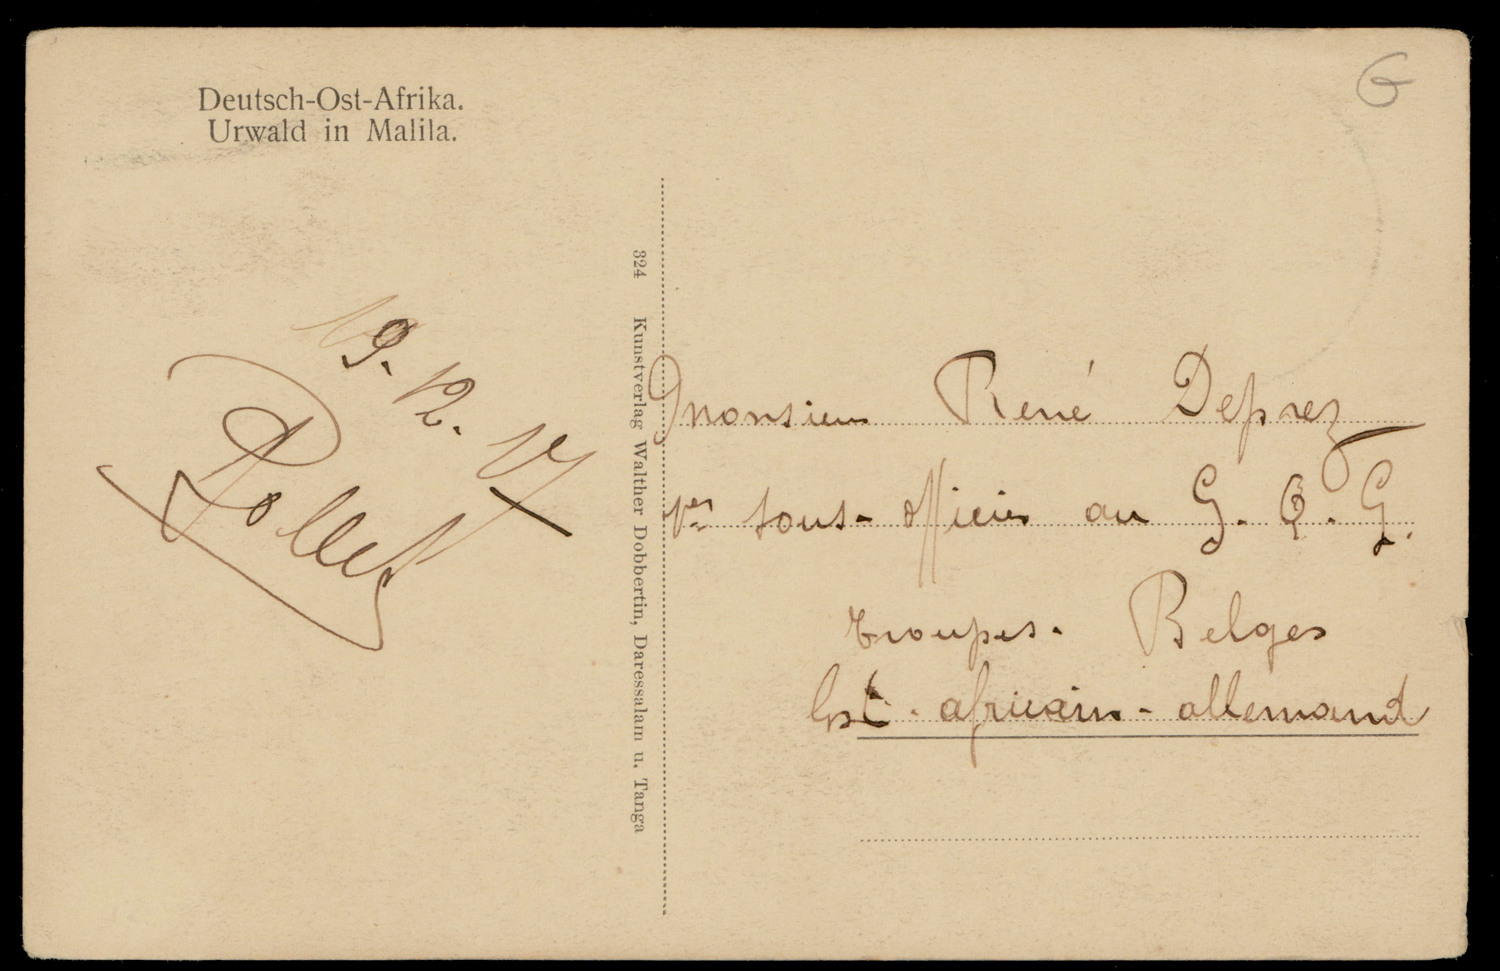 Deutsch-Ost-Afrika.
Urwald in Malila.
G
19.12.17
Pollet
324 Kunstverlag Walther Dobbertin, Daressalam u. Tanga
Monsieur René Deprez
1er sous-officier au G.Q.G.
troupes. Belges
Est-africain-allemand